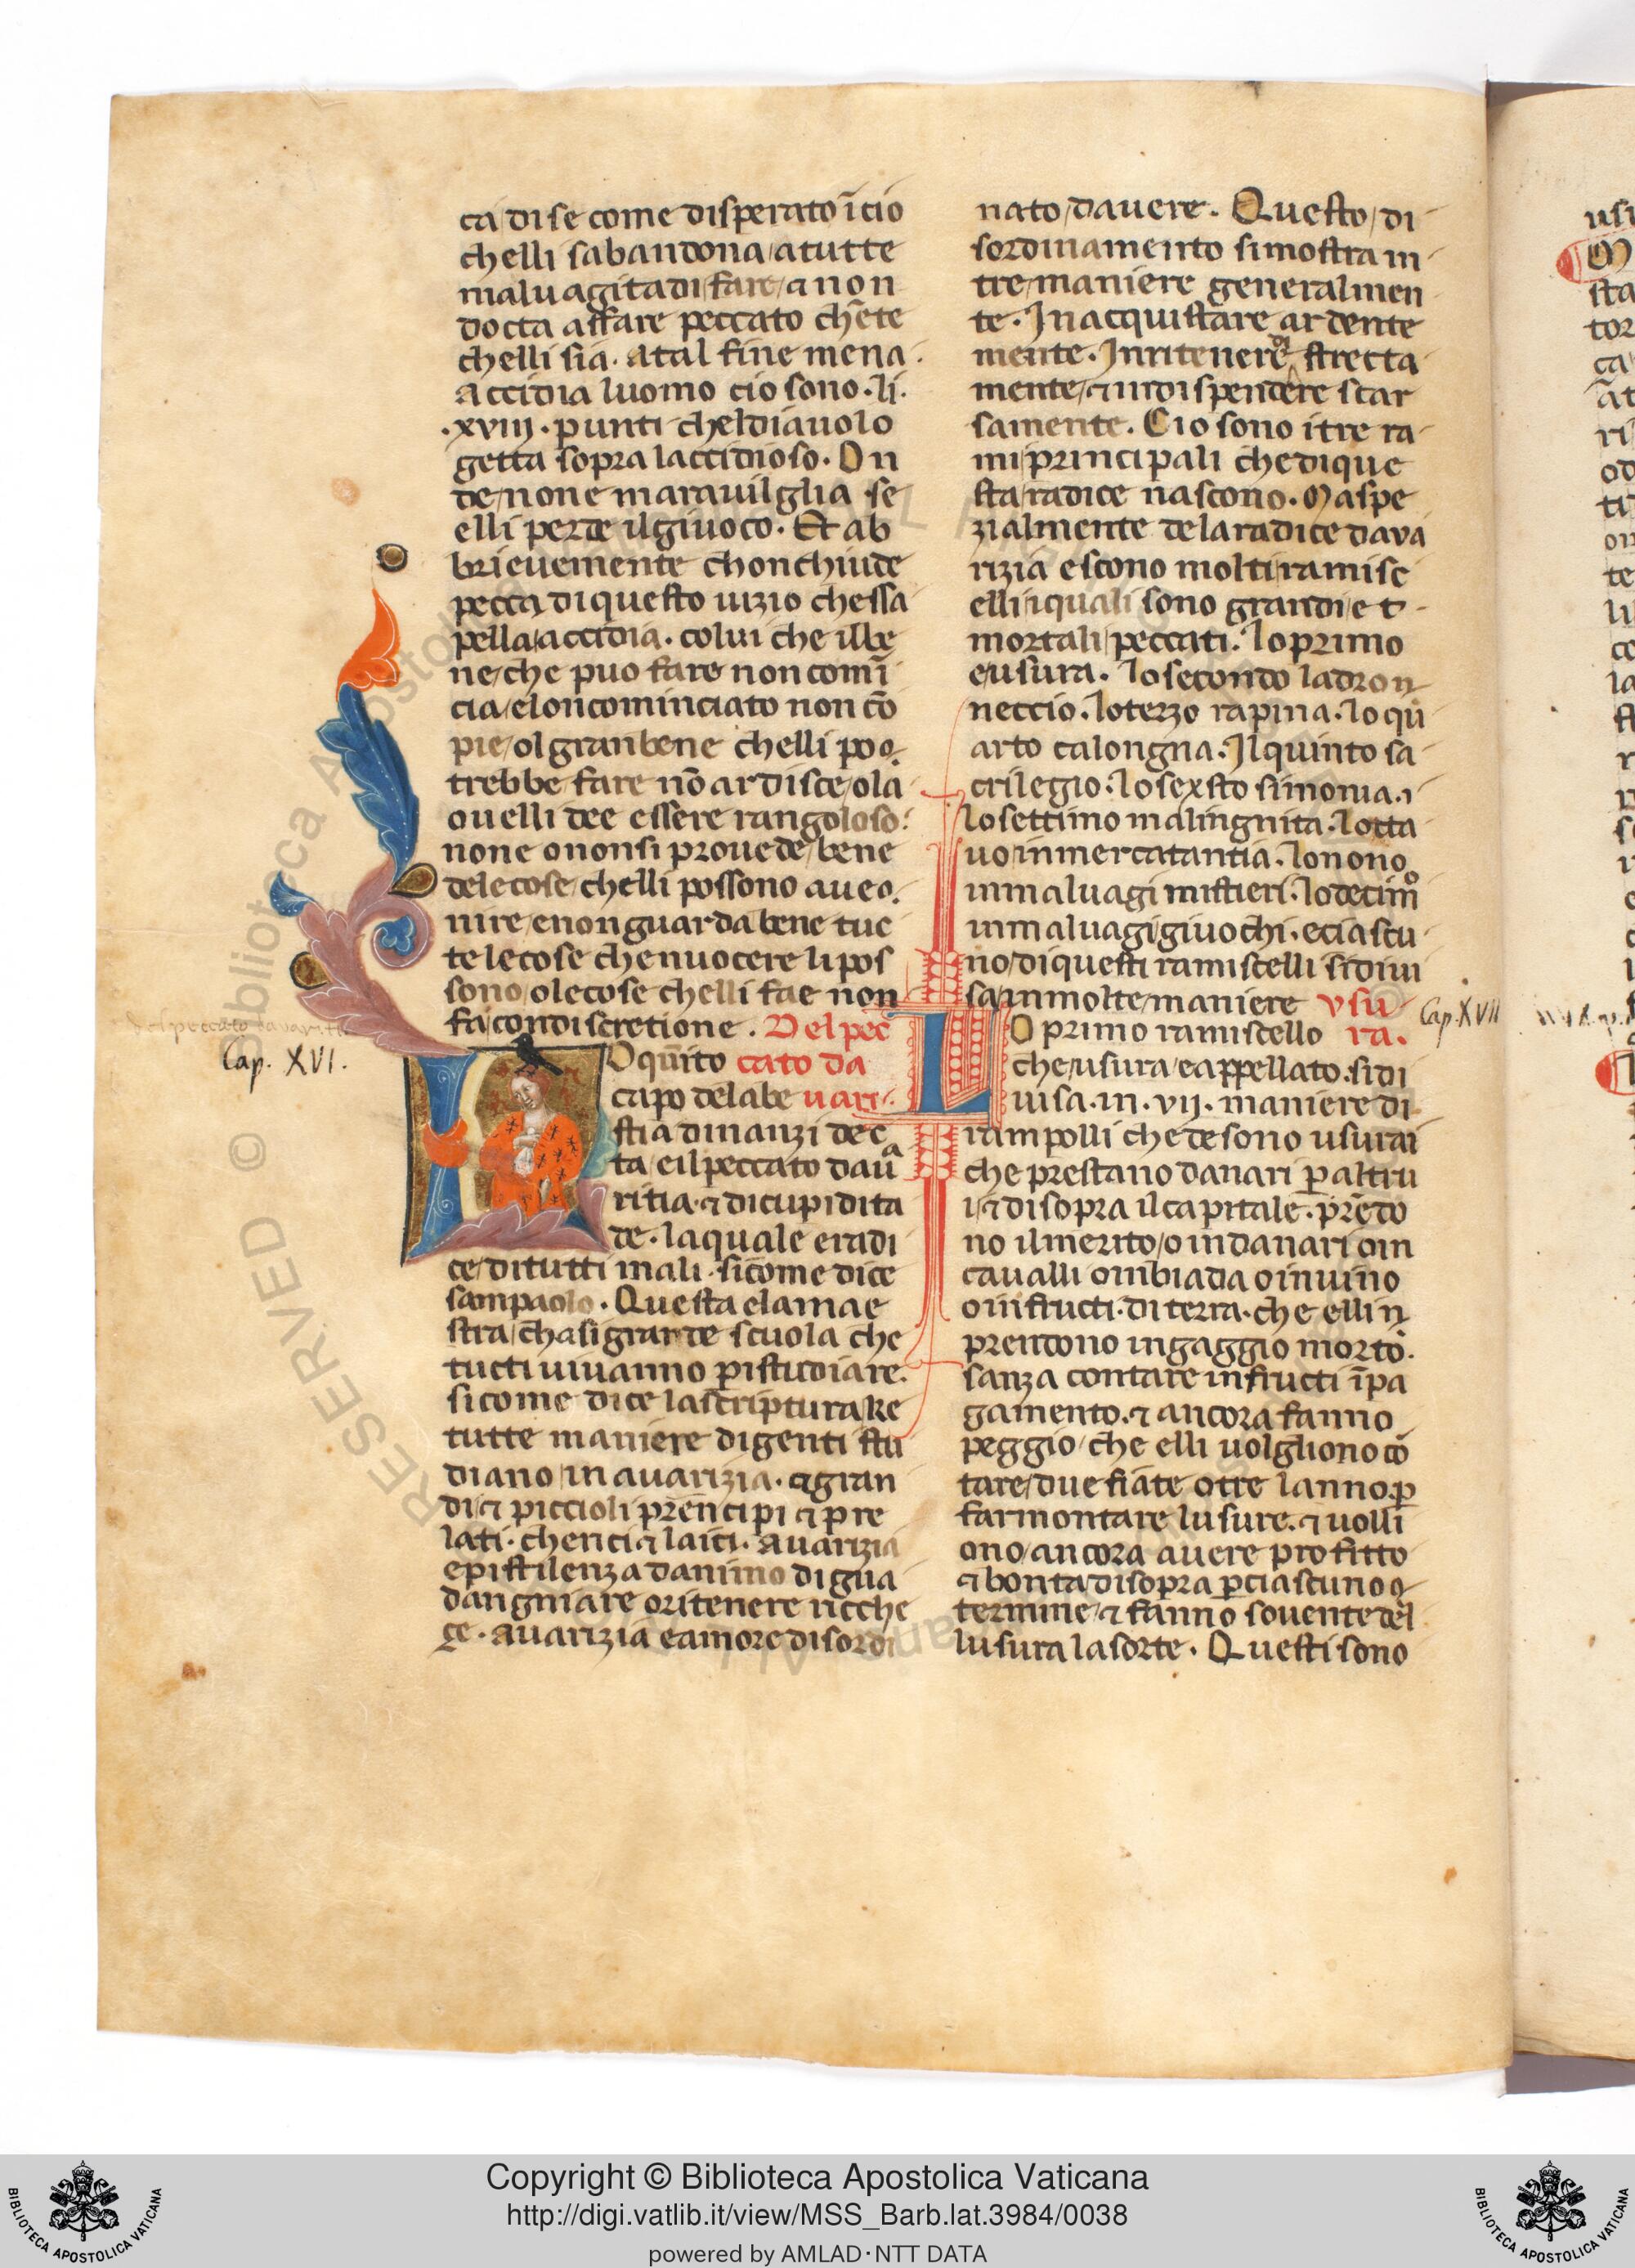 ca di se come disperato ī cio
chelli sabandona a tutte
maluagita di fare a non
docta affare peccato chēte
chelli sia. a tal fine mena
accidia luomo cio sono. li.
.xviij. punti cheldiauolo
getta sopra laccidioso. On
de none marauilglia se
elli perde il giuoco. Et ab
brieuemente chonchiude
pecca di questo uizio chessa
pella accidia. colui che il be
ne che puo fare non comī
cia elo ncominciato non cō
pie ol gran bene chelli po
trebbe fare nō ardisce ola
ouelli dee essere rangoloso.
none o non si prouede bene
dele cose chelli possono aue
nire e non guarda bene tuc
te le cose che nuocere li pos
sono o le cose chelli fae non
fa con discretione. Del pec
cato da
uari.
Cap. XVI.
LO quīto
capo dela be
stia dinanzi dec
ta e il peccato daua
ritia. ⁊ di cupidita
de. la quale e radi
ce di tutti mali. sicome dice
sam paolo. Questa e la mae
stra cha si grande scuola che
tucti ui uanno p̱ istudiare.
sicome dice la scriptura ke
tutte maniere di genti stu
diano in auarizia. ⁊ gran
di ⁊ piccioli prēncipi ⁊ pre
lati. cherici ⁊ laici. auarizia
e pistilenza danimo di gua
dangniare o ritenere ricche
ge. auarizia e amore disordi
nato dauere. Questo di
sordinamento si mostra in
tre maniere generalmen
te. In acquistare ardente
mente. In ritenere stretta
mente ⁊ in dispendere scar
samente. Cio sono i tre ra
mi principali che di que
sta radice nascono. Ma spe
zialmente de la radice daua
rizia escono molti ramisc
elli i quali sono grandi e t
mortali peccati. Lo primo
e usura. Lo secondo ladron
neccio. Lo terzo rapina. Lo qu
arto calongna. Il quinto sa
crilegio. Lo sexsto simonia.
Lo settimo malingnita. Lotta
uo in mercatantia. Lo nono
in maluagi mistieri. Lo decimo
in maluagi giuochi. e ciascu
no di questi ramiscelli si diui
sa in molte maniere vsu
ra.
Cap. XVII
LO primo ramiscello
che usura e appellato. si di
uisa. in. vij. maniere di
rampolli che de sono usurai
che prestano danari p̱ altru
i ⁊ di sopra il capitale. prēdo
no il merito o in danari o in
caualli o in biada o in uino
o in fructi di terra. che elli
prendono in gaggio morto.
sanza contare in fructi ī pa
gamento. ⁊ ancora fanno
peggio che elli uolgliono cō
tare due fiate otre lanno. p̱
far montare lusure. ⁊ uolli
ono ancora auere profitto
⁊ bonta di sopra p̱ ciascuno
termine ⁊ fanno souente del
lusura la sorte. Questi sono
Copyright © Biblioteca Apostolica Vaticana
http://digi.vatlib.it/view/MSS_Barb.lat.3984/0038
powered by AMLAD·NTT DATA
BIBLIOTECA APOSTOLICA VATICANA
BIBLIOTECA APOSTOLICA VATICANA